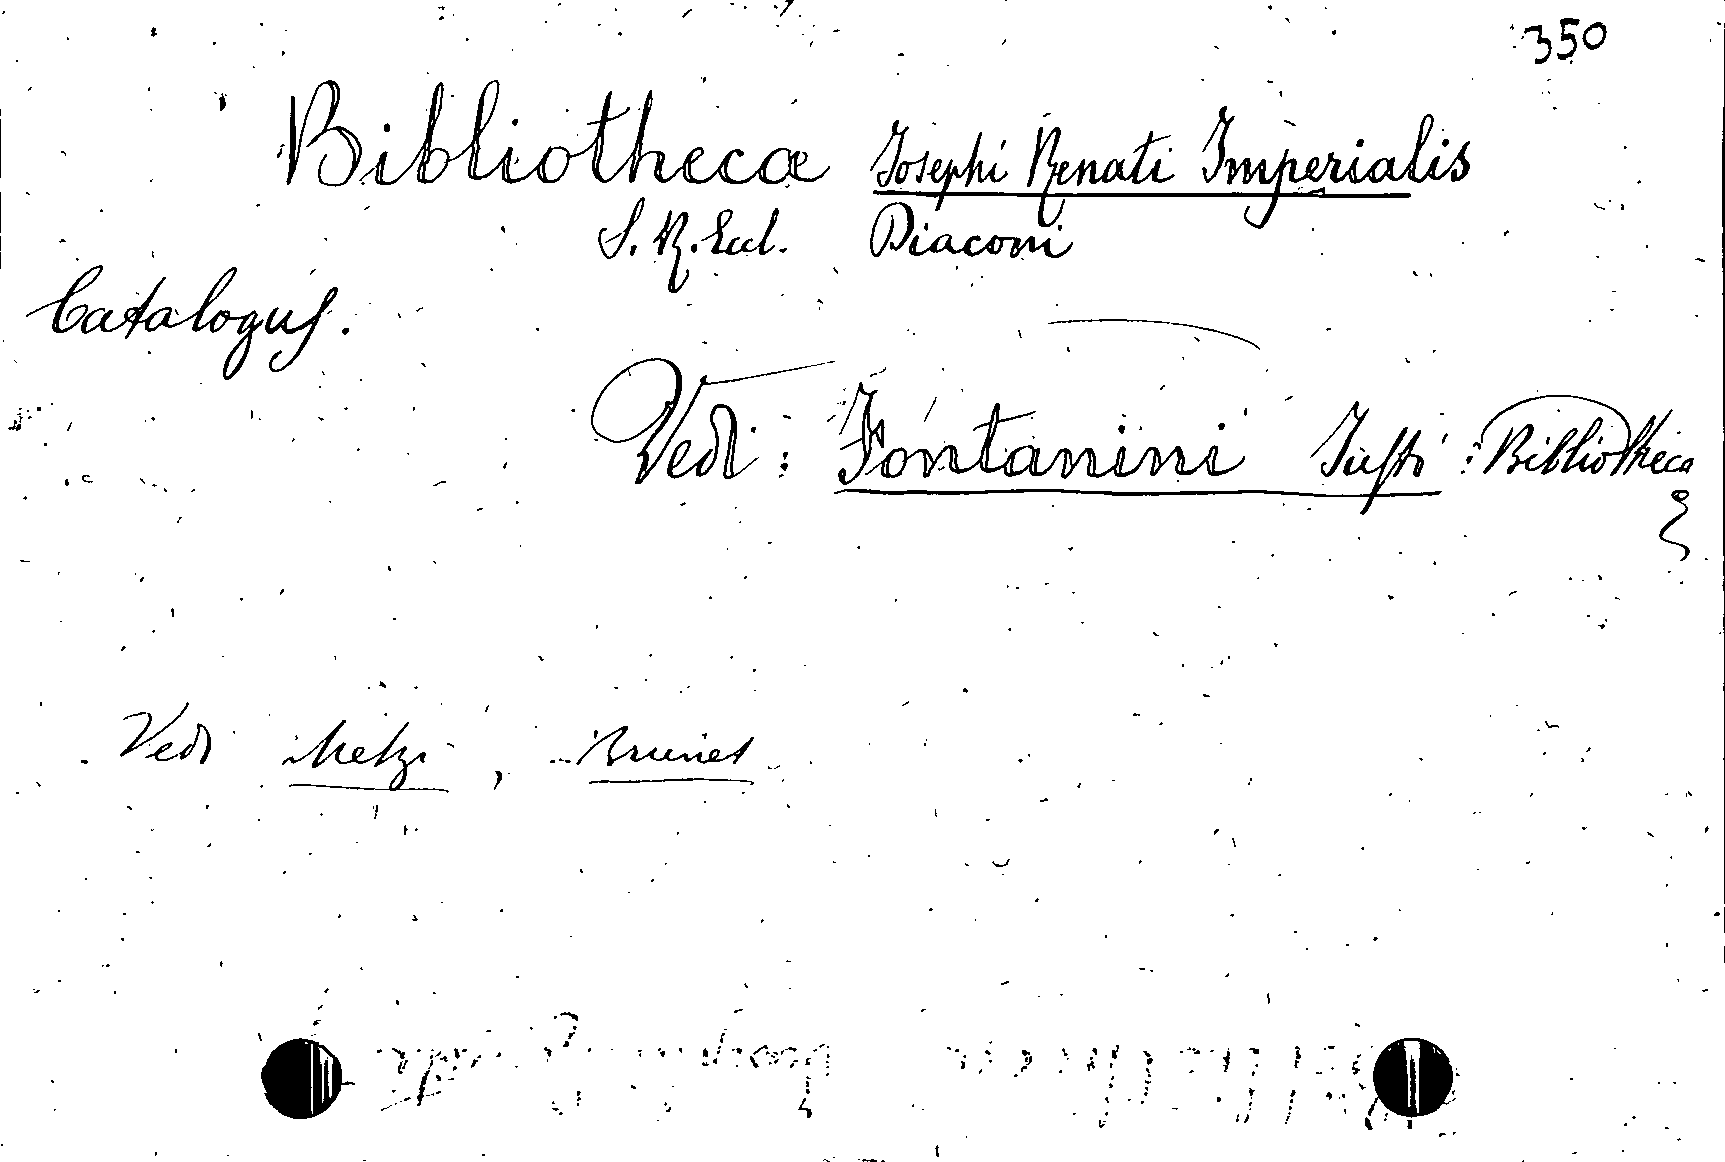 350
Bibliothecæ Josephi Renati Imperialis
S. R. Eccl. Diaconi
Catalogus.
Vedi: Fontanini Justi: Bibliotheca
Vedi Melzi, Brunet